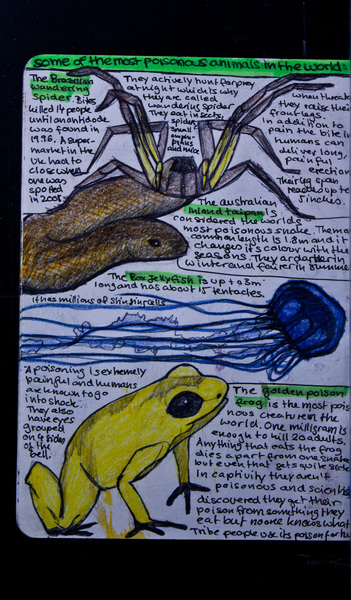 some of the most poisonous animals in the world:
The Brazilian
wandering
spider. Bites
killed 14 people
until an antidote
was found in
1996. A super-
market in the
UK had to
close when
one was
spotted
in 2005
They actively hunt for prey
at night which is why
they are called
wandering spider
They eat insects,
spiders
small
amph-
ibians
and mice
when threate
they raise their
front legs.
In addition to
pain the bite in
humans can
deliver long,
painful
erection
Their leg span
reaches up to
5 inches.
The australian
inland taipan is
considered the worlds
most poisonous snake. The ma
common length is 1.8m and it
changes it's colour with the
seasons. They are darker in
winter and fairer in summe
The Box Jellyfish is up to 3m
long and has about 15 tentacles.
It has millions of stinging cells
A poisoning is extremely
painful and humans
are known to go
into shock.
They also
have eyes
grouped
on 4 sides
of the
bell.
The golden poison
frog is the most pois
nous creature in the
world. One milligram is
enough to kill 20 adults.
Anything that eats the frog
dies apart from one snake
but even that gets quite sick
In captivity they aren't
poisonous and scientis
discovered they get their
poison from something they
eat but no one knows what
Tribe people use its poison for hu